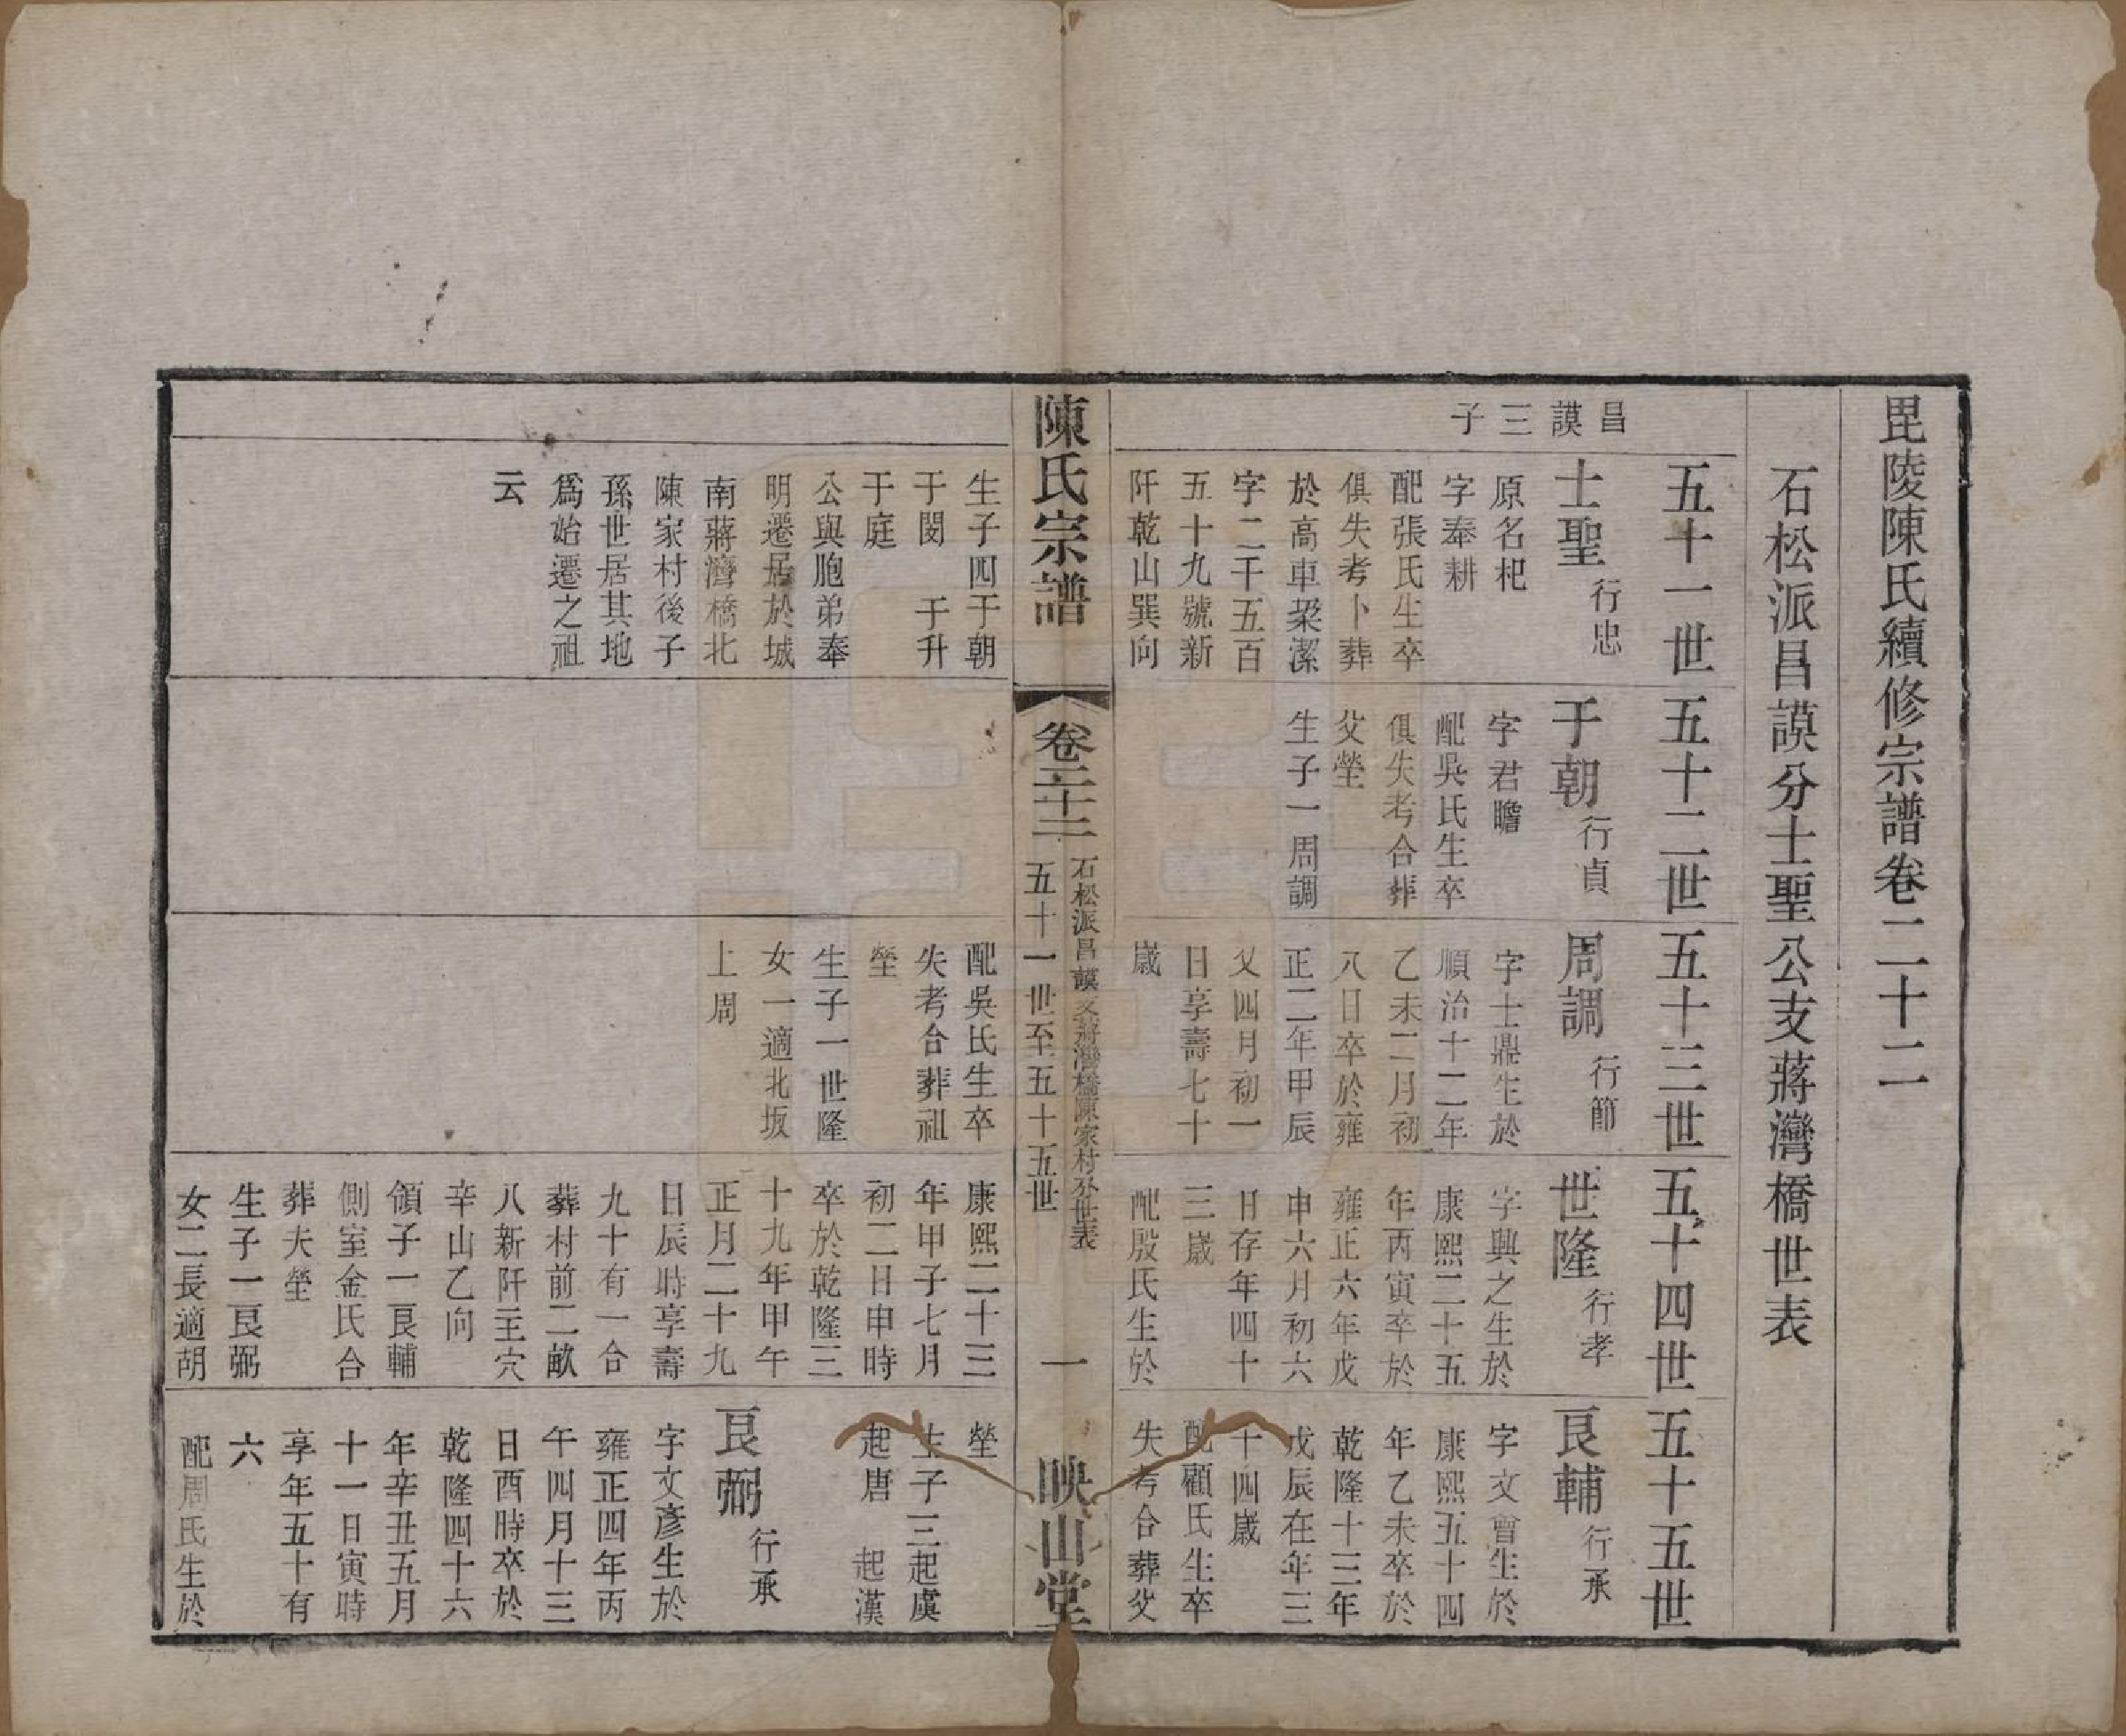 毘陵陳氏續修宗譜卷二十二
石松派昌謨分士聖公支蔣灣橋世表
五十一世
五十二世
五十三世
五十四世
五十五世
昌謨三子
士聖 行忠
原名杞
字奉耕
配張氏生卒
俱失考卜葬
於高車梁潔
字二千五百
五十九號新
阡乾山巽向
生子四于朝
于閔 于升
于庭
公與胞弟奉
明遷居於城
南蔣灣橋北
陳家村後子
孫世居其地
爲始遷之祖
云
于朝 行貞
字君瞻
配吳氏生卒
俱失考合葬
父塋
生子一周調
周調 行節
字士鼎生於
順治十二年
乙未二月初
八日卒於雍
正二年甲辰
父四月初一
日享壽七十
歲
配吳氏生卒
失考合葬祖
塋
生子一世隆
女一適北坂
上周
世隆 行孝
字興之生於
康熙二十五
年丙寅卒於
雍正六年戊
申六月初六
日存年四十
三歲
配殷氏生於
康熙二十三
年甲子七月
初二日申時
卒於乾隆三
十九年甲午
正月二十九
日辰時享壽
九十有一合
葬村前二畝
八新阡主穴
辛山乙向
領子一良輔
側室金氏合
葬夫塋
生子一良弼
女二長適胡
良輔 行承
字文曾生於
康熙五十四
年乙未卒於
乾隆十三年
戊辰在年三
十四歲
配顧氏生卒
失考合葬父
塋
生子三起虞
起唐 起漢
良弼 行承
字文彥生於
雍正四年丙
午四月十三
日酉時卒於
乾隆四十六
年辛丑五月
十一日寅時
享年五十有
六
配周氏生於
陳氏宗譜
卷二十二
石松派昌謨支蔣灣橋陳家村分世表
五十一世至五十五世
一
映山堂